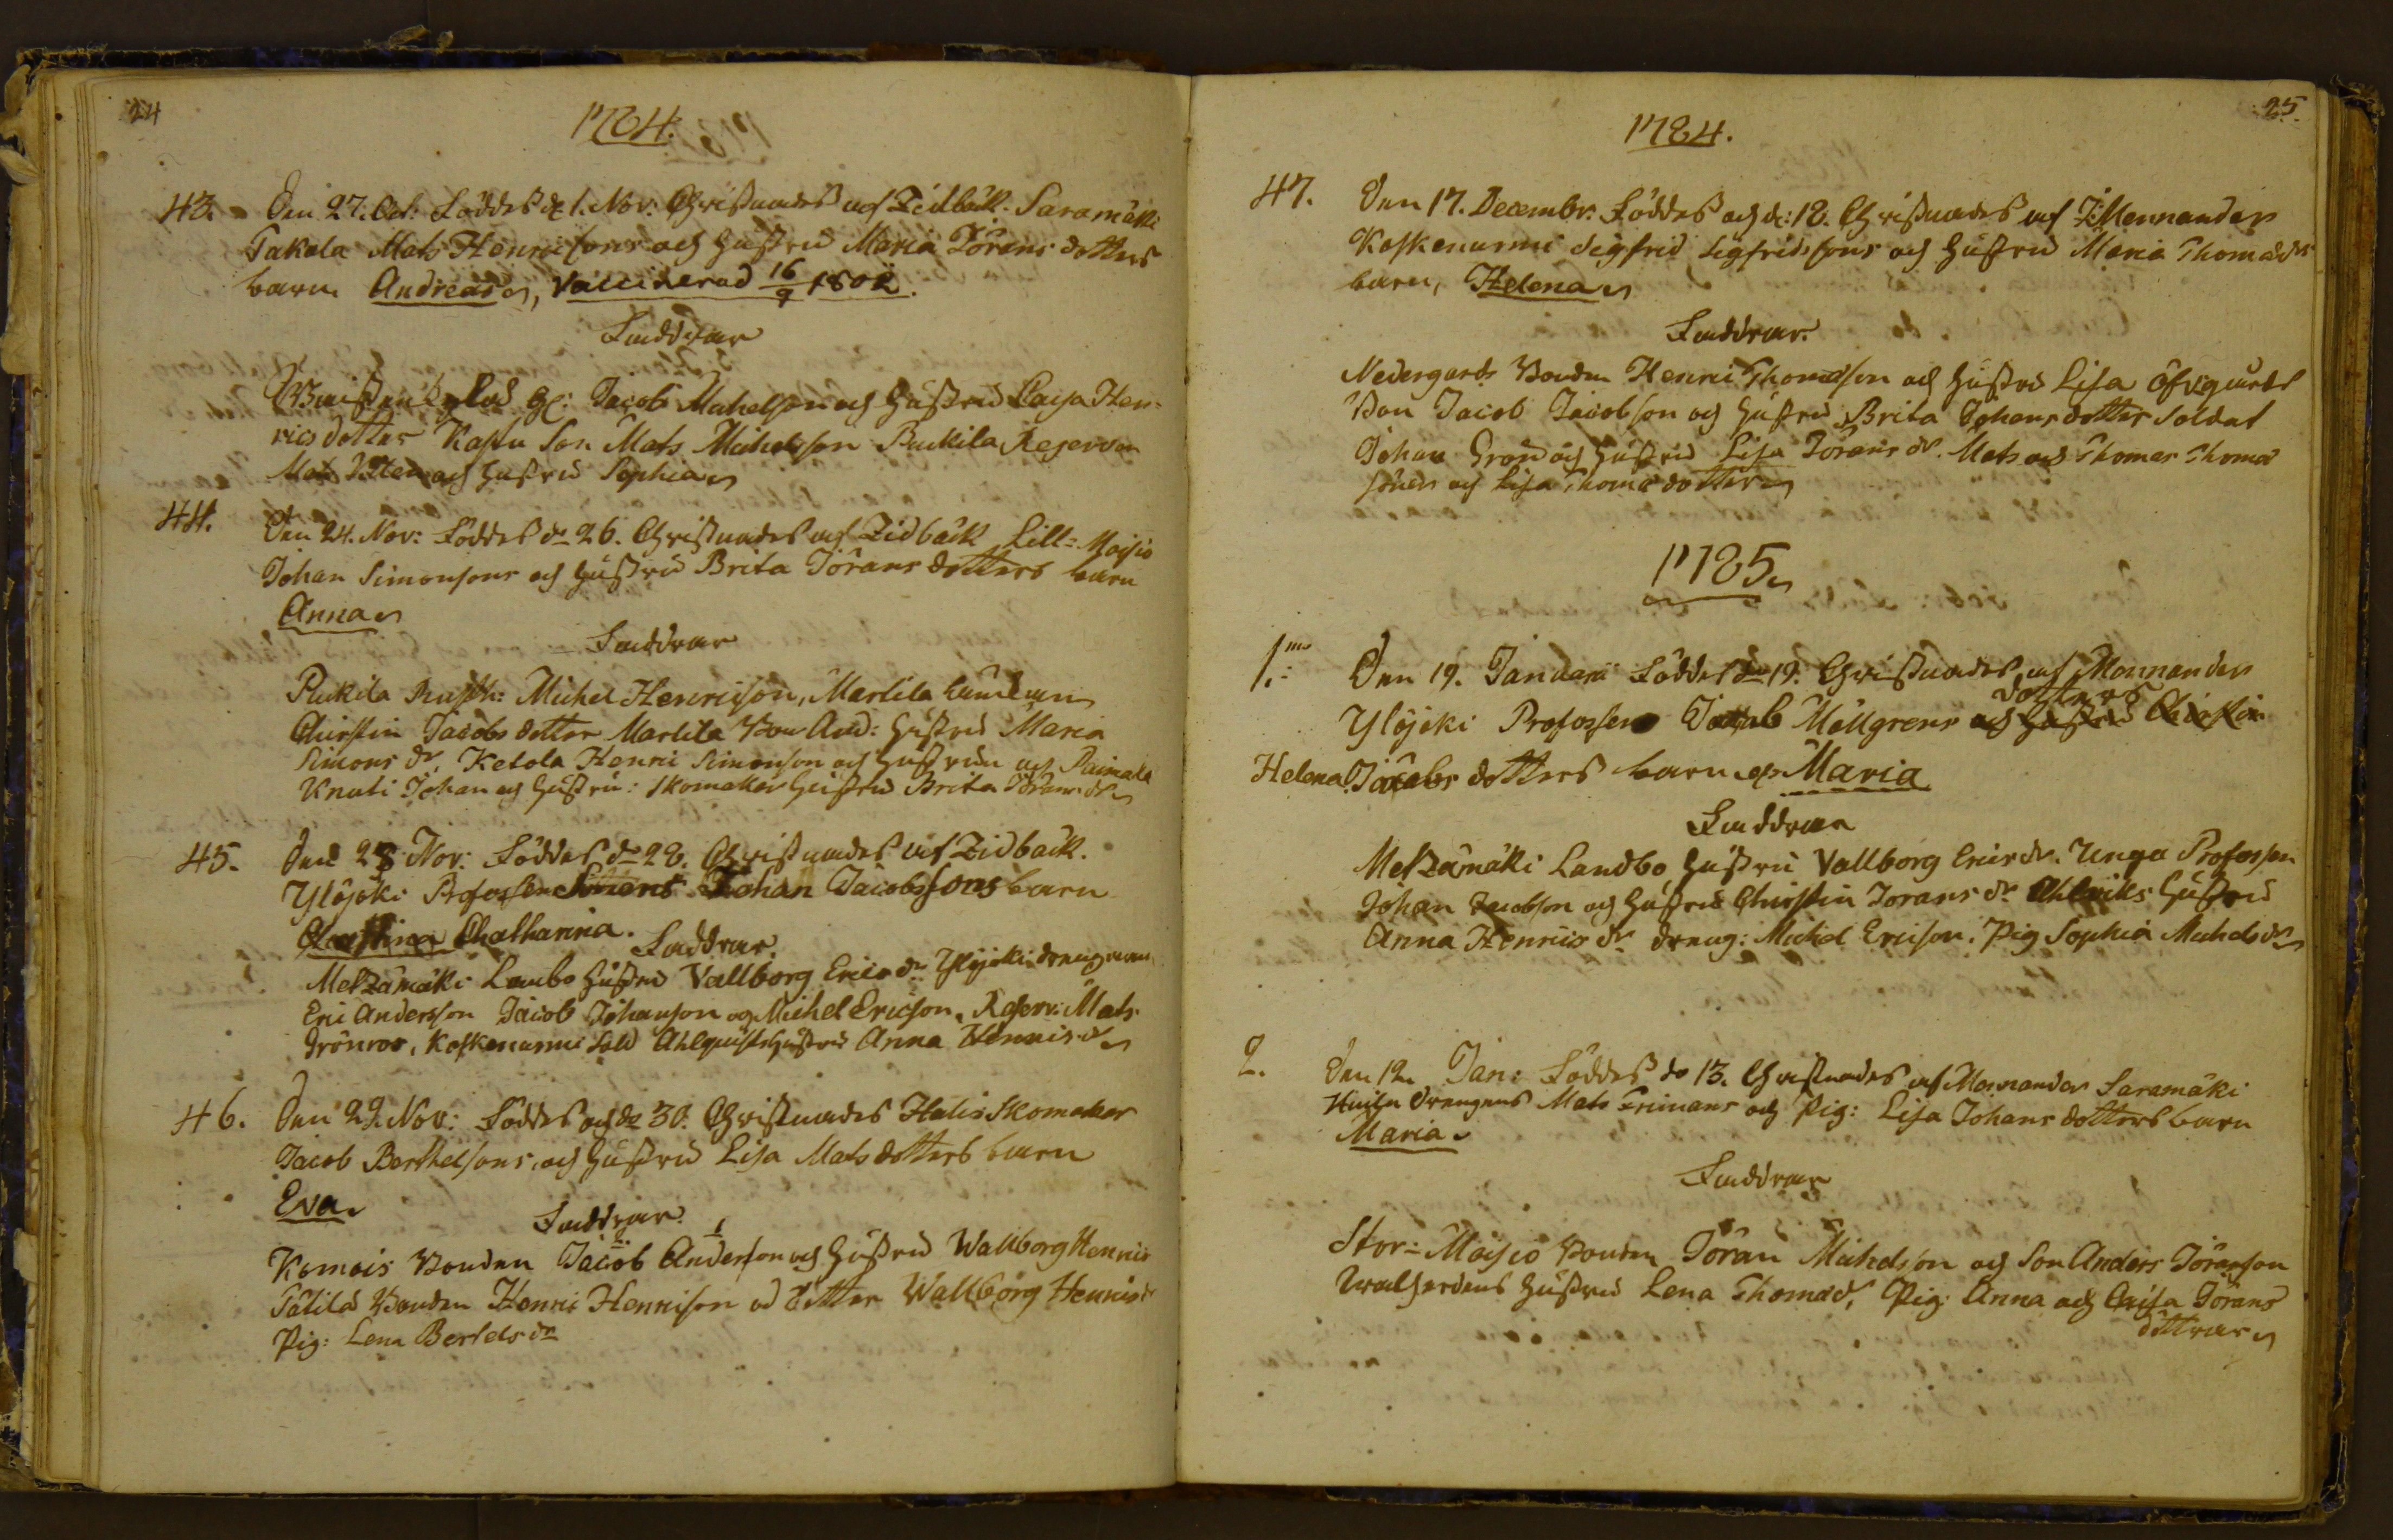 24
1784.
43. Den 27. Oct: Föddes d. 1. Nov: Christnades af Zidbäck Saramäki
Takala Mats Henricsons och Hustru Maria Jörans dotters
barn Andreas, Vaccinerad 16/9 1802.
Faddrar
Jacob Michelson och Hustru Caisa Hen-
rics dotter Kastu Son Mats Michelsson Puckila Reserven
Mats och Hustru Sophia
44. Den 24. Nov: Föddes dn 26. Christnades af Zidbäck Lill-Moisio
Johan Simonsons och Hustru Brita Jörans dotters barn
Anna
Faddrar
Puckila Michel Henricson, Martila
Christin Jacobs dotter Martila Bon And: Hustru Maria
Simons dr, Ketola Henric Simonson och Hustrun och Paimala
Knuti Johan och Hustru: Skomakar Hustru Brita Jörans dr
45. Den 28 Nov: Föddes dn 28. Christnades af Zidbäck.
Ylöjoki Profossen Johan Jacobssons barn
Chatharina.
Faddrar.
Metzämäki Lanbo Hustru Vallborg Erics dr Ylöjoki drengarna
Eric Andersson Jacob Johanson och Michel Ericson, Reserv: Mats
Grönroos, Koskenurmi Sold Ahlquists Hustru Anna Henrics dr
46. Den 29. Nov: Föddes och dn 30. Christnades Halis Skomakar
Jacob Berthelsons, och Hustru Lisa Mats dotters barn
Eva
Faddrar.
Komois Bonden Jacob Anderson och Hustru Wallborg Henrics
Tätilä Bonden Henric Henricson dotter Wallborg Henrics dr
Pig: Lena Bertels dr
25.
1784.
47. Den 17. Decembr. Föddes och d: 18. Christnades af J: Mennander
Koskenurmi Sigfrid Sigfridssons och Hustru Maria Thomæ dr
barn, Helena
Faddrar.
Nedergårds Bonden Henric Thomæson och Hustru Lisa Öfvergårds
Bon Jacob Jacobson och Hustru Brita Johans dotter Soldat
Johan Grön och Hustru Lisa Jörans dr. Mats och Thomas Thomæ
söner och Lisa Thomæ dotter
1785
1.mo Den 19. Januarii Föddes dn 19. Christnades af Mennander
dotters
Ylöjoki Profossens Jacob Mellgrens och Hustru Christin
Helena Jacobs dotters barn Maria
Faddrar
Metzämäki Landbo Hustru Vallborg Erics dr. Unga Profossen
Johan Jacobson och Hustru Christin Jorans dr Ahlqviks Hustru
Anna Henrics dr dreng: Michel Ericson. Pig Sophia Michels dr
2. Den 12 Jan: Föddes dn 13. Christnades af Mennander Saramäki
Drengens Mats Frimans och Pig: Lisa Johans dotters barn
Maria
Faddrar
Stor-Moisio Bonden Jöran Michelson och Son Anders Jöranson
Hustru Lena Thomæ d, Pig: Anna och Caisa Jörans
döttrar